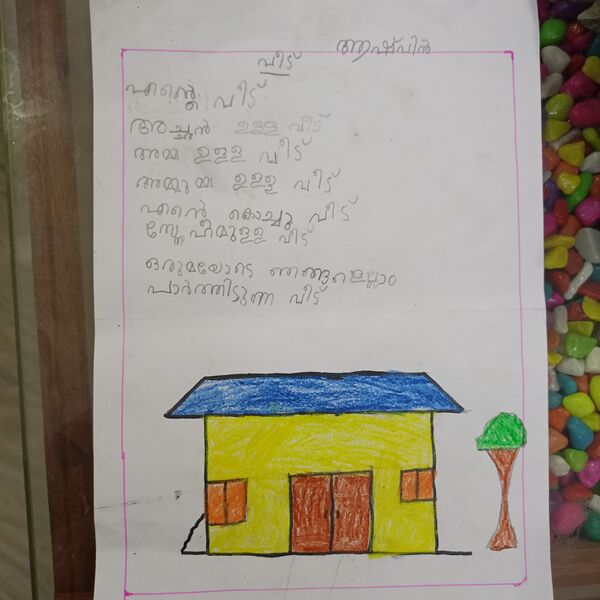 ആഷ്‌വിൻ
വീട്
എന്റെ വീട്
അച്ഛൻ ഉള്ള വീട്
അമ്മ ഉള്ള വീട്
അമ്മൂമ്മ ഉള്ള വീട്
എന്റെ കൊച്ചു വീട്
സ്നേഹമുള്ള വീട്
ഒരുമയോടെ ഞങ്ങളെല്ലാം
പാർത്തിടുന്ന വീട്